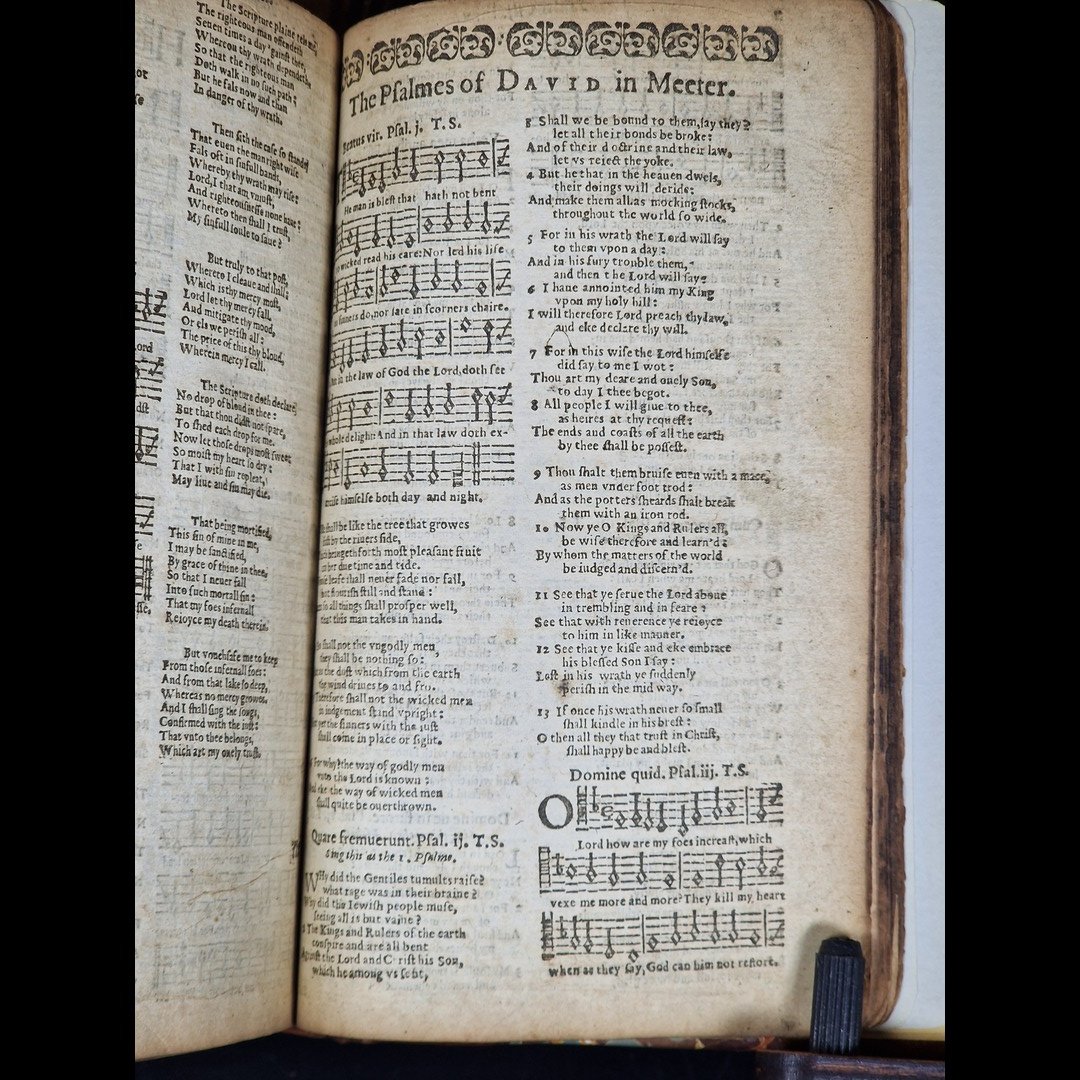 The Scripture plaine
The righteous man offendeth
Seuen times a day 'gainst thee,
Whereon thy wrath dependeth,
So that the righteous man
Doth walk in no such path:
But he fals now and than
In danger of thy wrath.
Then sith the case so stands,
That euen the man right wise
Fals oft in sinfull bands,
Whereby thy wrath may rise:
Lord, I that am vniust,
And righteousnesse none haue:
Whereto then shall I trust,
My sinfull soule to saue?
But truly to that post,
Whereto I cleaue and shall:
Which is thy mercy most,
Lord let thy mercy fall,
And mitigate thy mood,
Or els we perish all:
The price of this thy bloud,
Wherein mercy I call.
The Scripture doth declare,
No drop of bloud in thee:
But that thou didst not spare,
To shed each drop for me.
Now let those drops most sweet
So moist my heart so dry:
That I with sin repleat,
May liue and sin may die.
That being mortified,
This sin of mine in me,
I may be sanctified,
By grace of thine in thee,
So that I neuer fall
Into such mortall sin:
That my foes infernall
Reioyce my death therein.
But vouchsafe me to keep
From those infernall foes:
And from that lake so deep,
Whereas no mercy growes.
And I shall sing the songs,
Confirmed with the iust:
That vnto thee belongs,
Which art my onely trust.
The Psalmes of DAVID in Meeter.
Beatus vir. Psal. j. T. S.
He man is blest that hath not bent
wicked read his eare: Nor led his life
sinners do, nor sate in scorners chaire.
in the law of God the Lord, doth set
whole delight: And in that law doth ex-
ercise himselfe both day and night.
shall be like the tree that growes
fast by the riuers side,
bringeth forth most pleasant fruit
in her due time and tide.
leafe shall neuer fade nor fall,
but flourish still and stand:
so all things shall prosper well,
that this man takes in hand.
shall not the vngodly men,
they shall be nothing so:
as the dust which from the earth
the wind driues to and fro.
Therefore shall not the wicked men
in iudgement stand vpright:
yet the sinners with the iust
shall come in place or sight.
For why? the way of godly men
vnto the Lord is known:
And eke the way of wicked men
shall quite be ouerthrown.
Quare fremuerunt. Psal. ij. T. S.
Sing this as the 1. Psalme.
WHy did the Gentiles tumults raise?
what rage was in their braine?
Why did the Iewish people muse,
seeing all is but vaine?
2 The Kings and Rulers of the earth
conspire and are all bent
Against the Lord and Christ his Son,
which he among vs sent,
3 Shall we be bound to them, say they?
let all their bonds be broke:
And of their doctrine and their law,
let vs reiect the yoke.
4 But he that in the heauen dwels,
their doings will deride:
And make them all as mocking stocks,
throughout the world so wide.
5 For in his wrath the Lord will say
to them vpon a day:
And in his fury trouble them,
and then the Lord will say:
6 I haue annointed him my King
vpon my holy hill:
I will therefore Lord preach thy law,
and eke declare thy will.
7 For in this wise the Lord himselfe
did say to me I wot:
Thou art my deare and onely Son,
to day I thee begot.
8 All people I will giue to thee,
as heires at thy request:
The ends and coasts of all the earth
by thee shall be possest.
9 Thou shalt them bruise euen with a mace,
as men vnder foot trod:
And as the potters sheards shalt break
them with an iron rod.
10 Now ye O Kings and Rulers all,
be wise therefore and learn'd:
By whom the matters of the world
be iudged and discern'd.
11 See that ye serue the Lord aboue
in trembling and in feare:
See that with reuerence ye reioyce
to him in like manner.
12 See that ye kisse and eke embrace
his blessed Son I say:
Lest in his wrath ye suddenly
perish in the mid way.
13 If once his wrath neuer so small
shall kindle in his brest:
O then all they that trust in Christ,
shall happy be and blest.
Domine quid. Psal. iij. T. S.
O Lord how are my foes increast, which
vexe me more and more? They kill my heart
when as they say, God can him not restore.